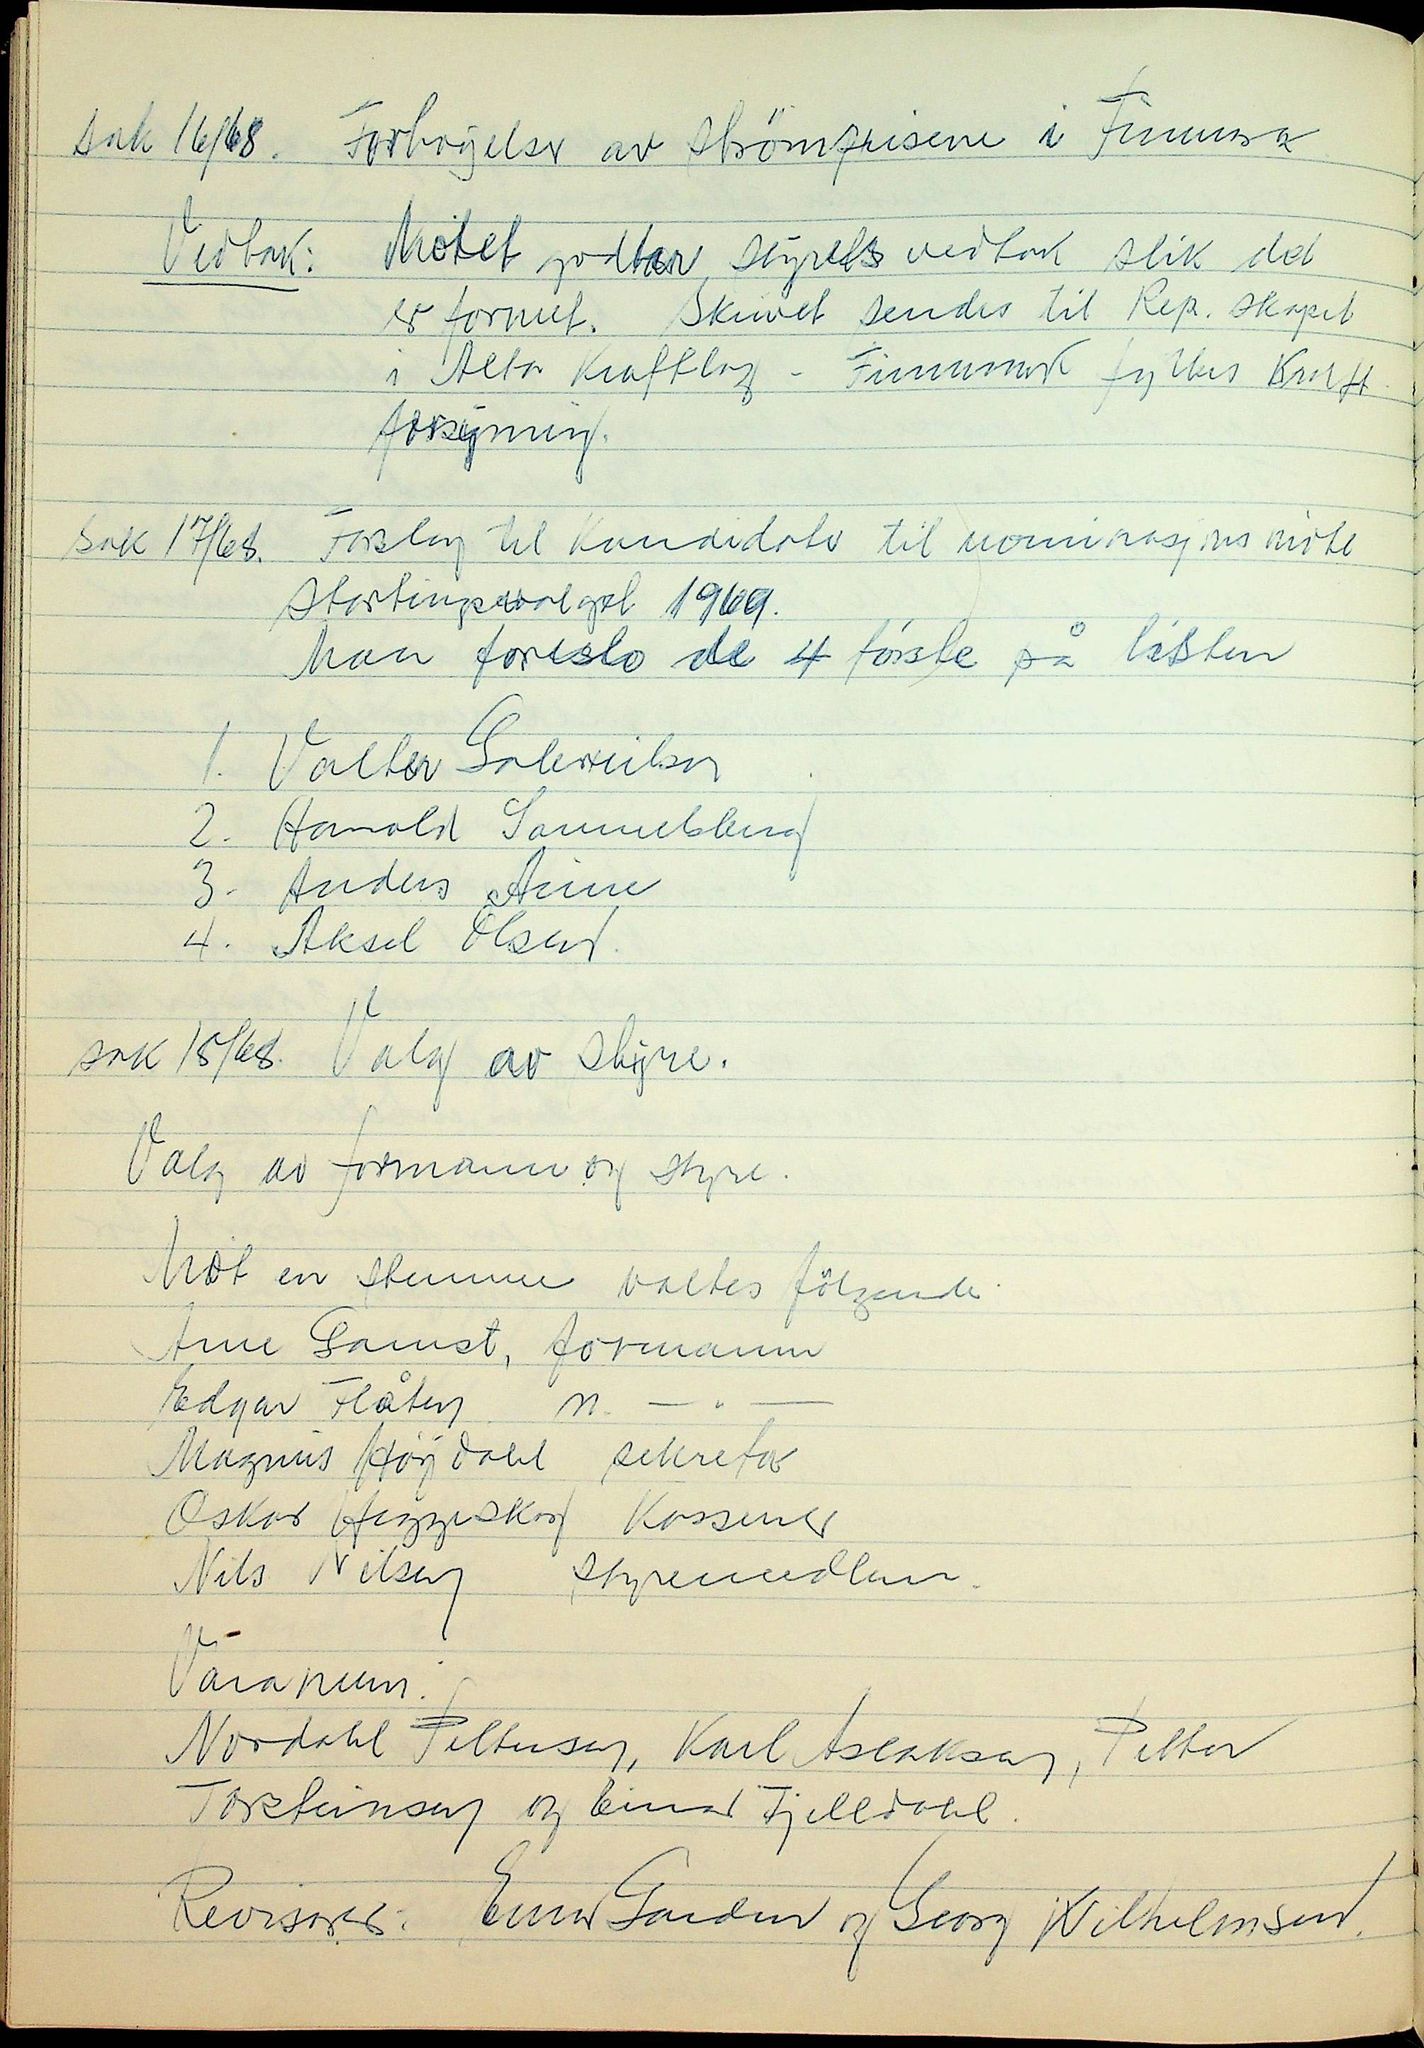 sak 16/68. Forhøyelser av strömprisene i Finnmark
Vedtak: Møtet godtar styrets vedtak slik det
er formet. Skrivet sendes til Rep. skapet
i Alta Kraftlag - Finnmark fylkes Kraft
forsyning.
sak 17/68. Forslag til Kandidater til nominasjons møte
Stortingsvalget 1969.
Man foreslo de 4 første på listen
1. Valter Gabrielsen
2. Harald Samuelsberg
3. Anders Aune
4. Aksel Olsen.
sak 18/68. Valg av styre.
Valg av formann og styre.
Mot en stemme valtes følgende
Arne Gamst, formann
Edgar Flåten n. — " —
Magnus Høydahl sekretær
Oskar Kasserer
Nils Nilsen styremedlem.
Varamenn:
Nordahl Pettersen, Karl Aslaksen, Petter
Torsteinsen og Einar Fjelldahl.
Revisorer: Einar og Georg Wilhelmsen.